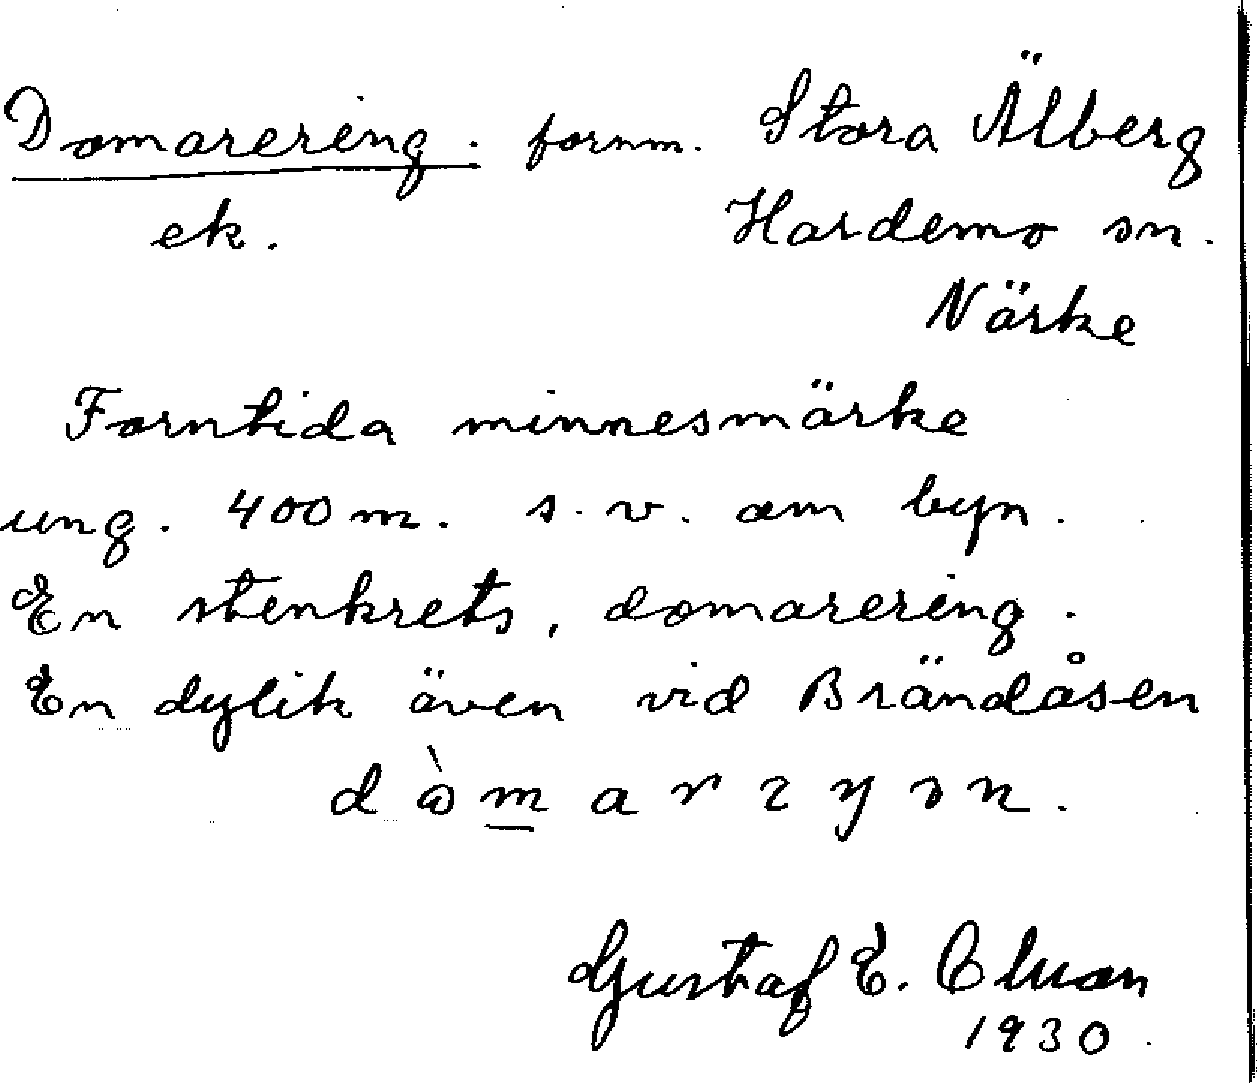 Domarering. fornm. Stora Älberg
ek. Hardemo sn.
Närke
Forntida minnesmärke
ung. 400 m. s. v. om byn.
En stenkrets, domarering.
En dylik även vid Brändåsen
Gustaf E.
1930.